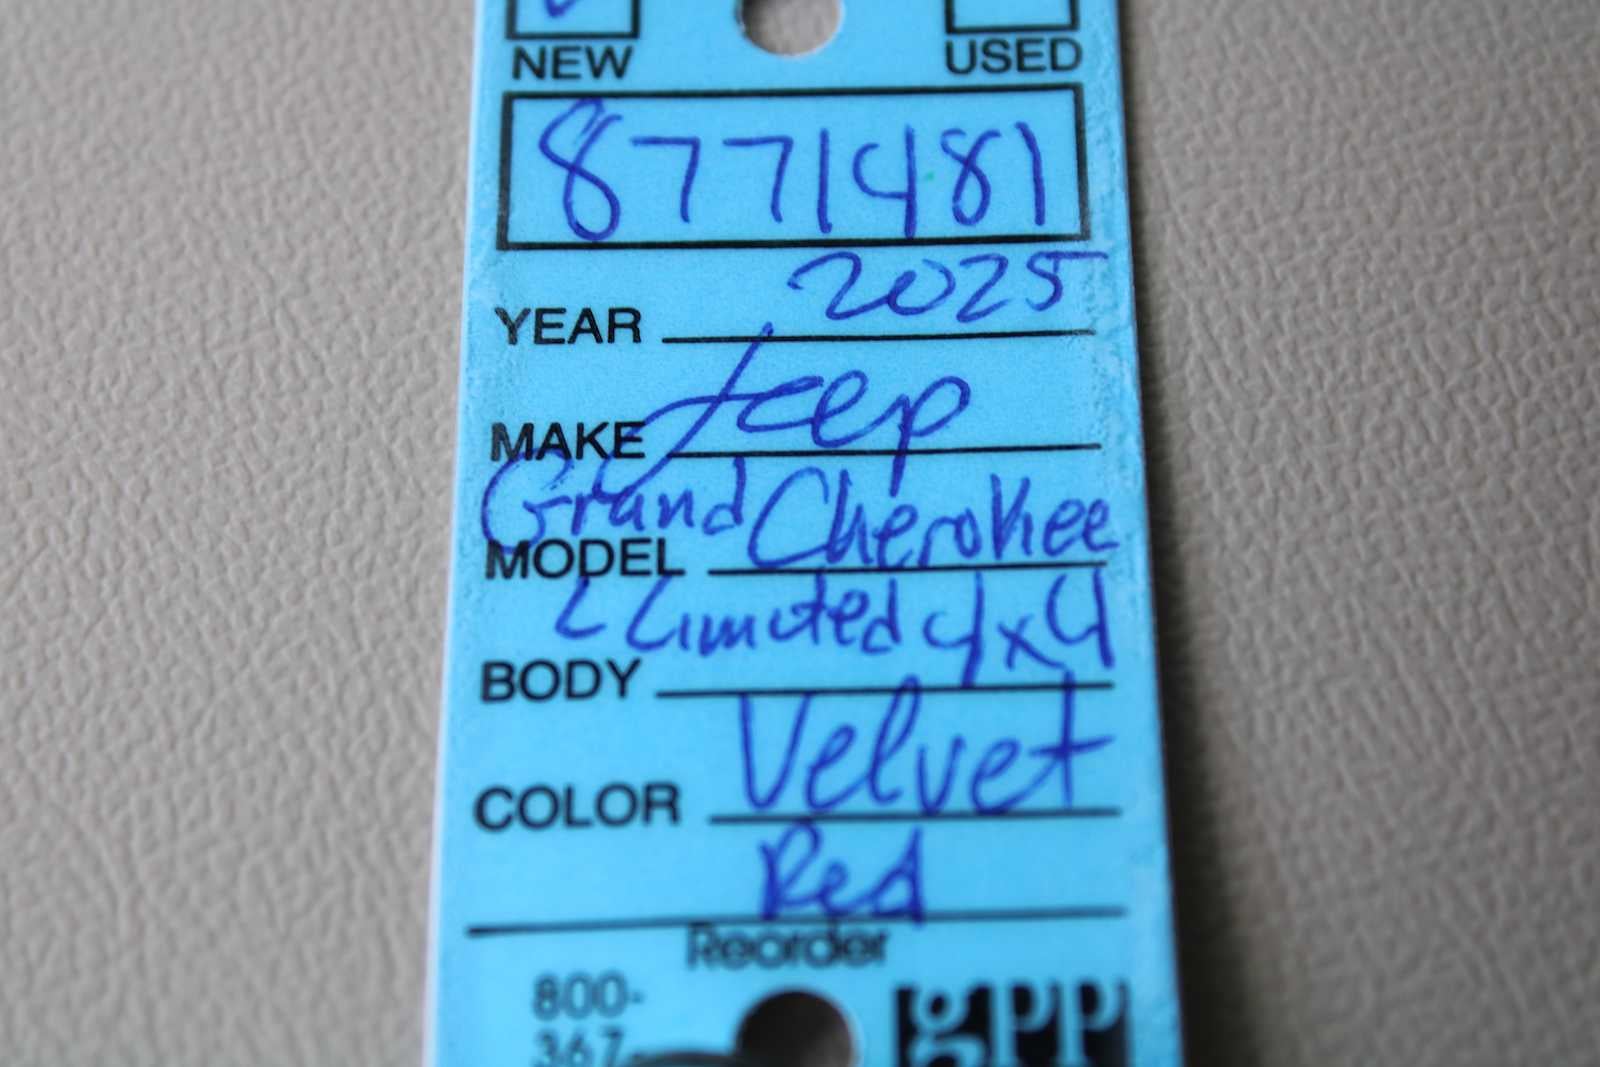 NEW USED
8771481
YEAR 2025
MAKE Jeep
Grand Cherokee
MODEL
L Limited 4x4
BODY
Velvet
COLOR
Red
Reorder
800-
367-
gpp